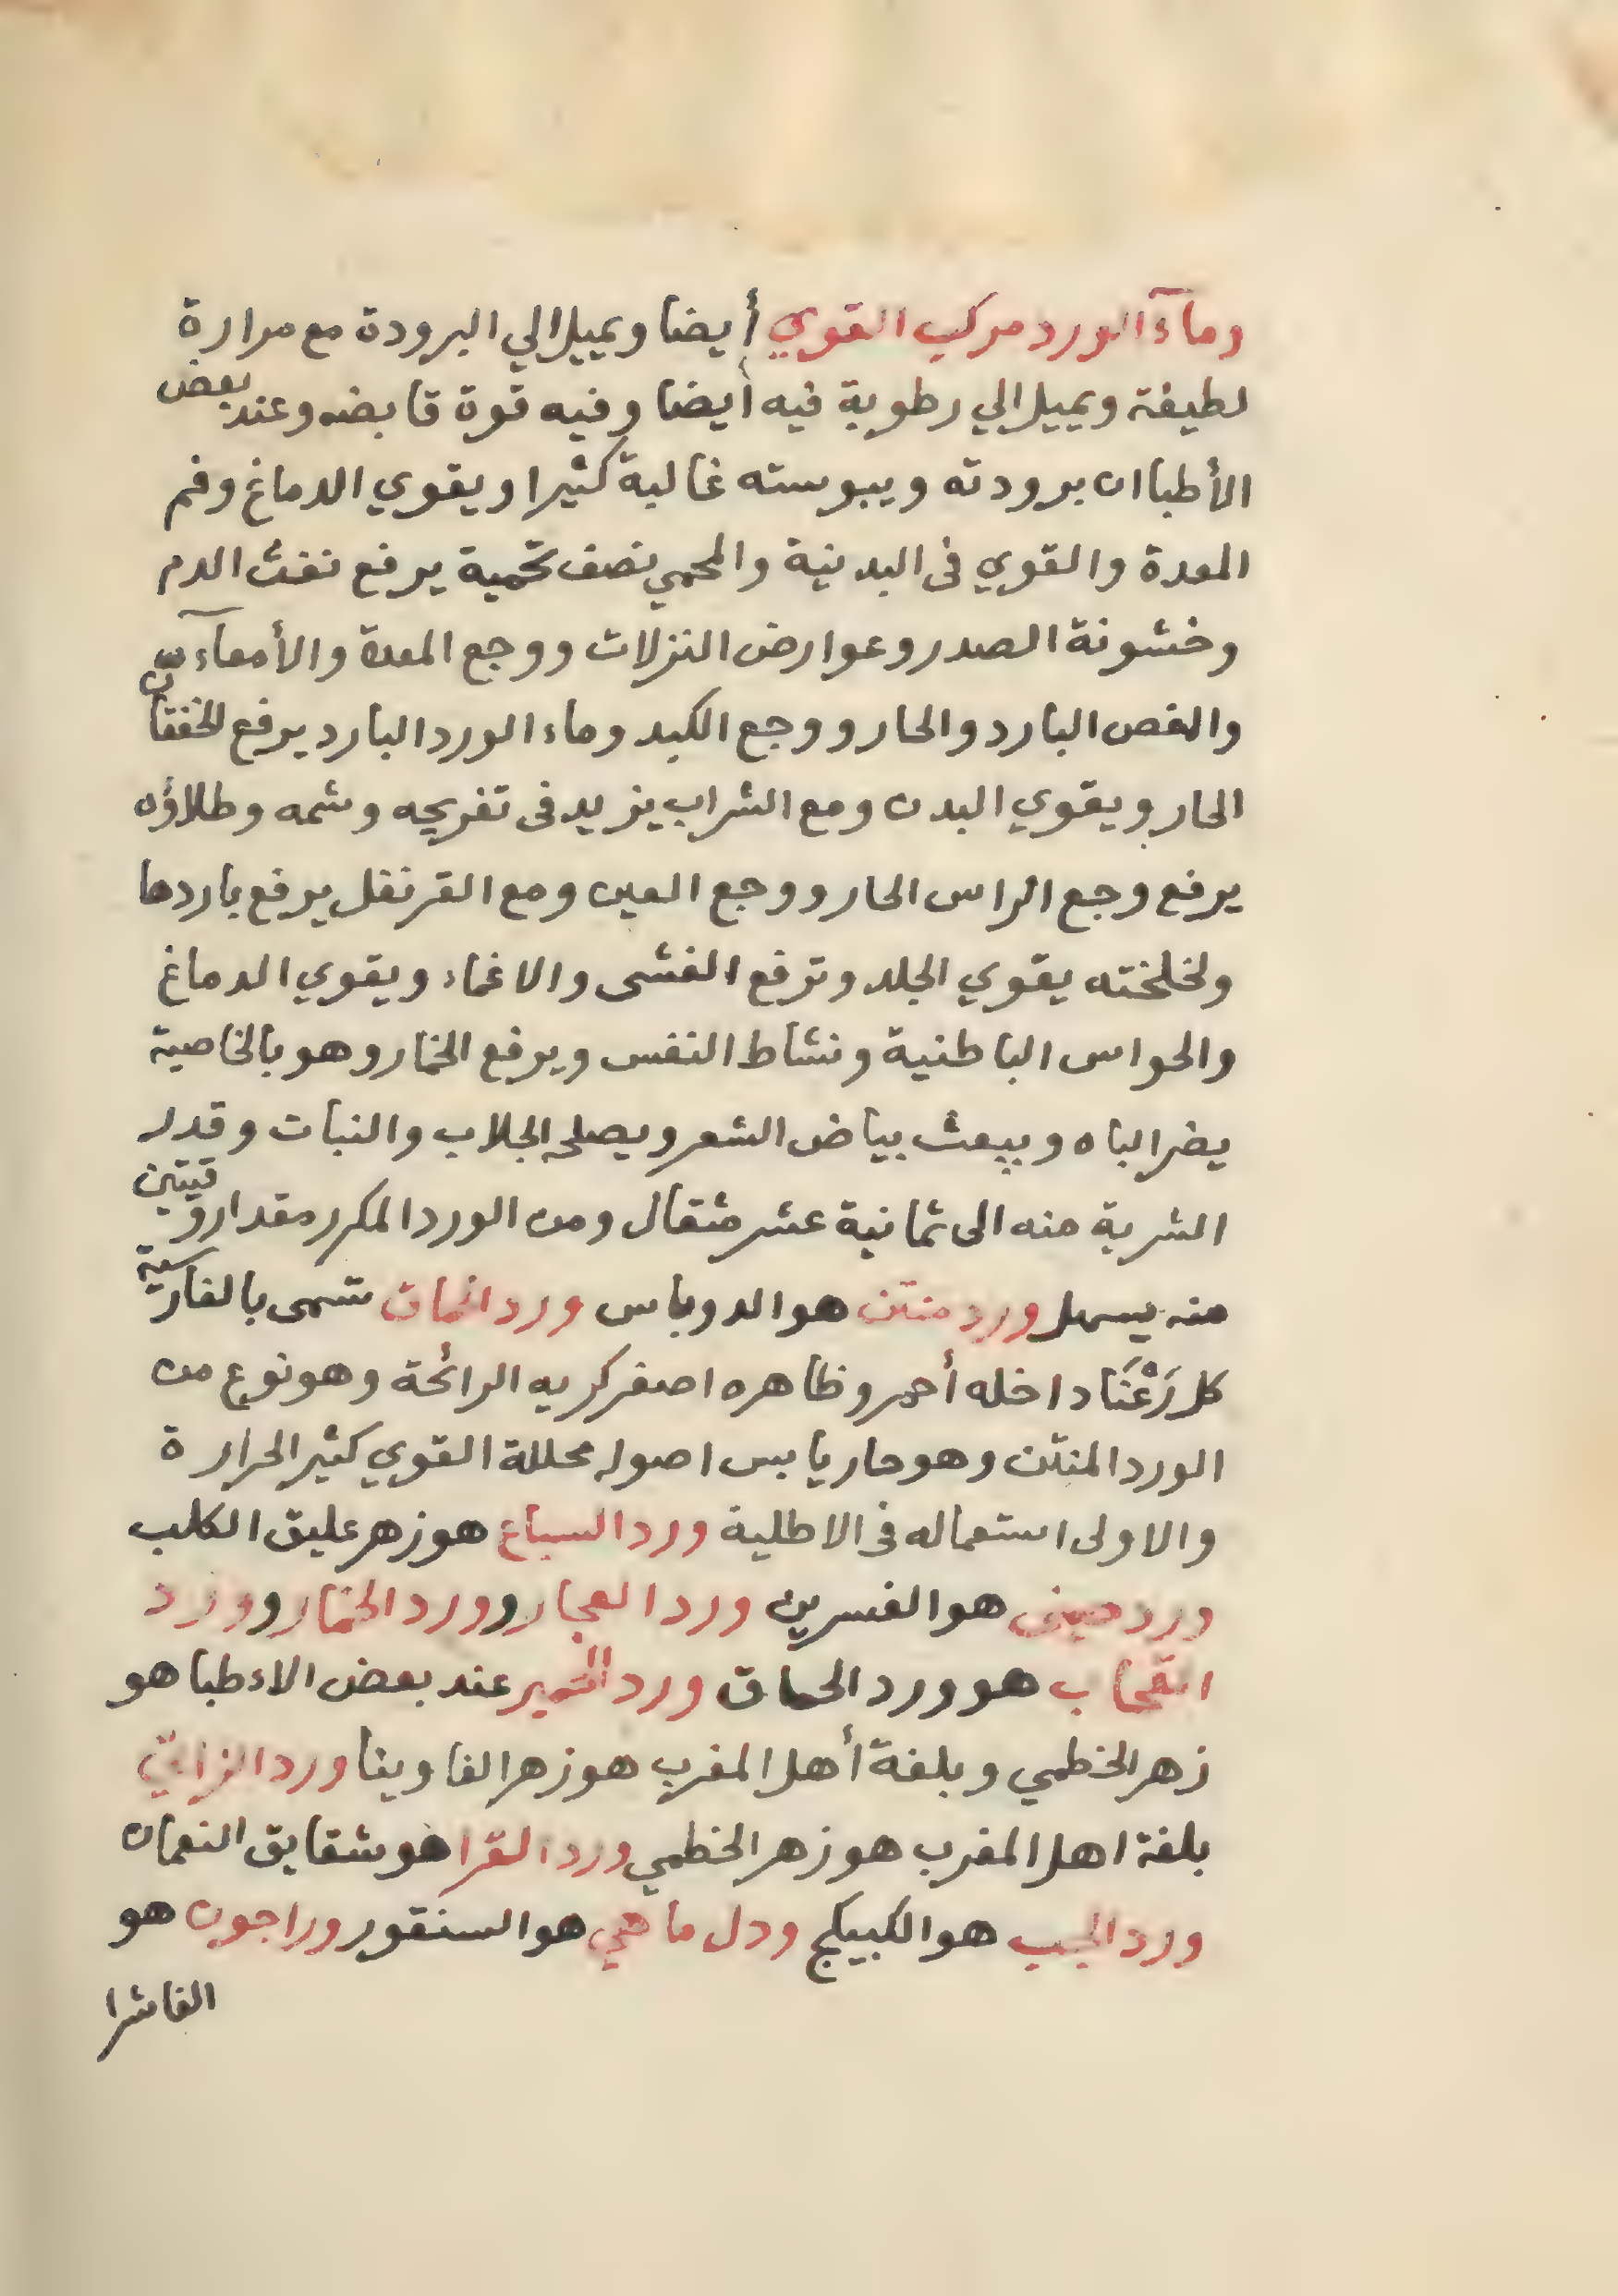 ومآء الورد مركب القوي أيضا ويميل الي البرودة مع مرارة
لطيفة ويميل الي رطوبة فيه أيضا وفيه قوة قابضه وعند بعض
الأطبا ان برودته ويبوسته غالبة كثيرا ويقوي الدماغ وفم
المعدة والقوي فى البدنية والمحمي نصف تحمية يرفع نفث الدم
وخشونة الصدر وعوارض النزلات ووجع المعدة والأمعآء
والمغص البارد والحار ووجع الكبد وماء الورد البارد يرفع الخفقان
الحار ويقوي البدن ومع الشراب يزيد فى تفريحه وشمه وطلاؤه
يرفع وجع الراس الحار ووجع العين ومع القرنفل يرفع باردها
ولخلخته يقوي الجلد وترفع الغشى والاغماء ويقوي الدماغ
والحواس الباطنية ونشاط النفس ويرفع الخمار وهو بالخاصية
يضر الباه ويبعث بياض الشعر ويصلحه الجلاب والنبات وقدر
الشربة منه الى ثمانية عشر مثقال ومن الورد المكرر مقدار وقيتين
منه يسهل ورد منتن هو الدوباس ورد الحماق تسمى بالفارسية
كل رَعْنَا داخله أحمر وظاهره اصفر كريه الرائحة وهو نوع من
الورد المنتن وهو حار يابس اصوله محللة القوي كثير الحرارة
والاولى استعماله فى الاطلية ورد السباع هو زهر عليق الكلب
ورد صينى هو النسرين ورد الفجار وورد الخمار وورد
القحاب هو ورد الحماق ورد الحمير عند بعض الاءطبا هو
زهر الخطمي وبلغة أهل المغرب هو زهر الفاوينا ورد الزاني
بلغة اهل المغرب هو زهر الخطمي ورد القرا هو شقايق النعمان
ورد الحب هو الكبيكج ودل ماهي هو السنقور وراجون هو
الفاشرا